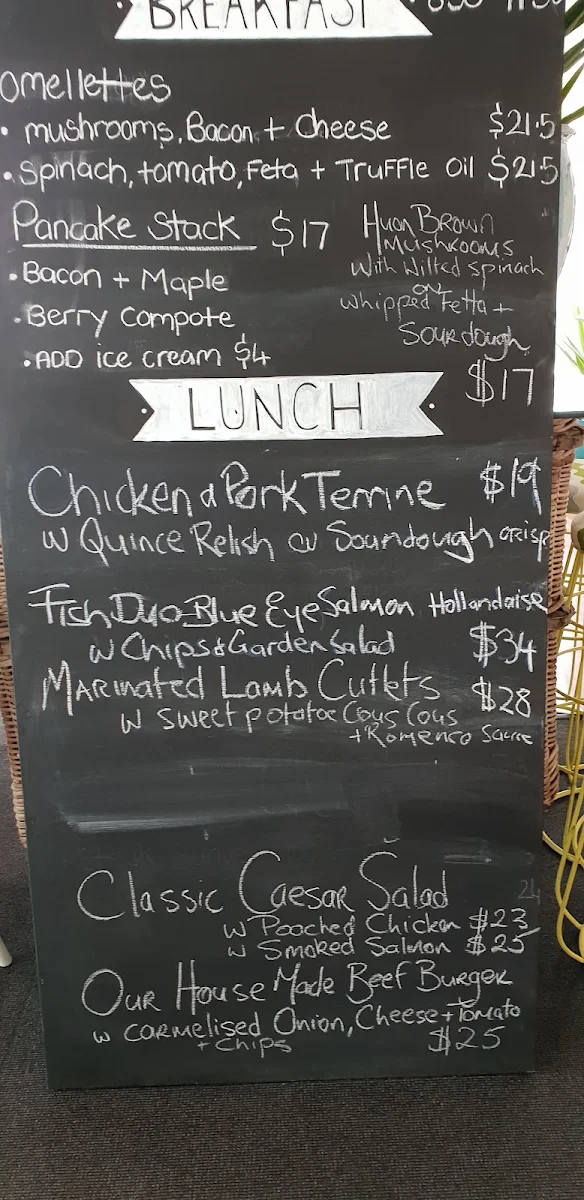 BREAKFAST
omellettes
• mushrooms, Bacon + Cheese $21.5
• Spinach, tomato, Feta + Truffle Oil $21.5
Pancake Stack $17
• Bacon + Maple
• Berry Compote
• ADD ice cream $4
Huon Brown
Mushrooms
With Wilted spinach
on
whipped Fetta +
Sourdough
$17
LUNCH
Chicken & Pork Terrine $19
w Quince Relish Soundough crisp
Fish Duo Blue Eye Salmon Hollandaise
w Chips & Garden Salad $34
Marinated Lamb Cutlets $28
w sweet potatoe Cous Cous
+ Romenco Sauce
Classic Caesar Salad
w Pooched Chicken $23
w Smoked Salmon $25
Our House Made Beef Burger
w carmelised Onion, Cheese + Tomato
+ Chips $25